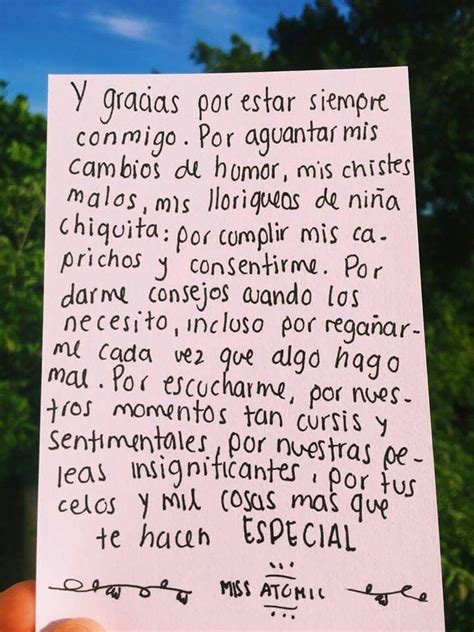 Y gracias por estar siempre
conmigo. Por aguantar mis
cambios de humor, mis chistes
malos, mis lloriqueos de niña
chiquita: por cumplir mis ca-
prichos y consentirme. Por
darme consejos cuando los
necesito, incluso por regañar-
me cada vez que algo hago
mal. Por escucharme, por nues-
tros momentos tan cursis y
sentimentales, por nuestras pe-
leas insignificantes, por tus
celos y mil cosas mas que
te hacen ESPECIAL
MISS ATOMIC